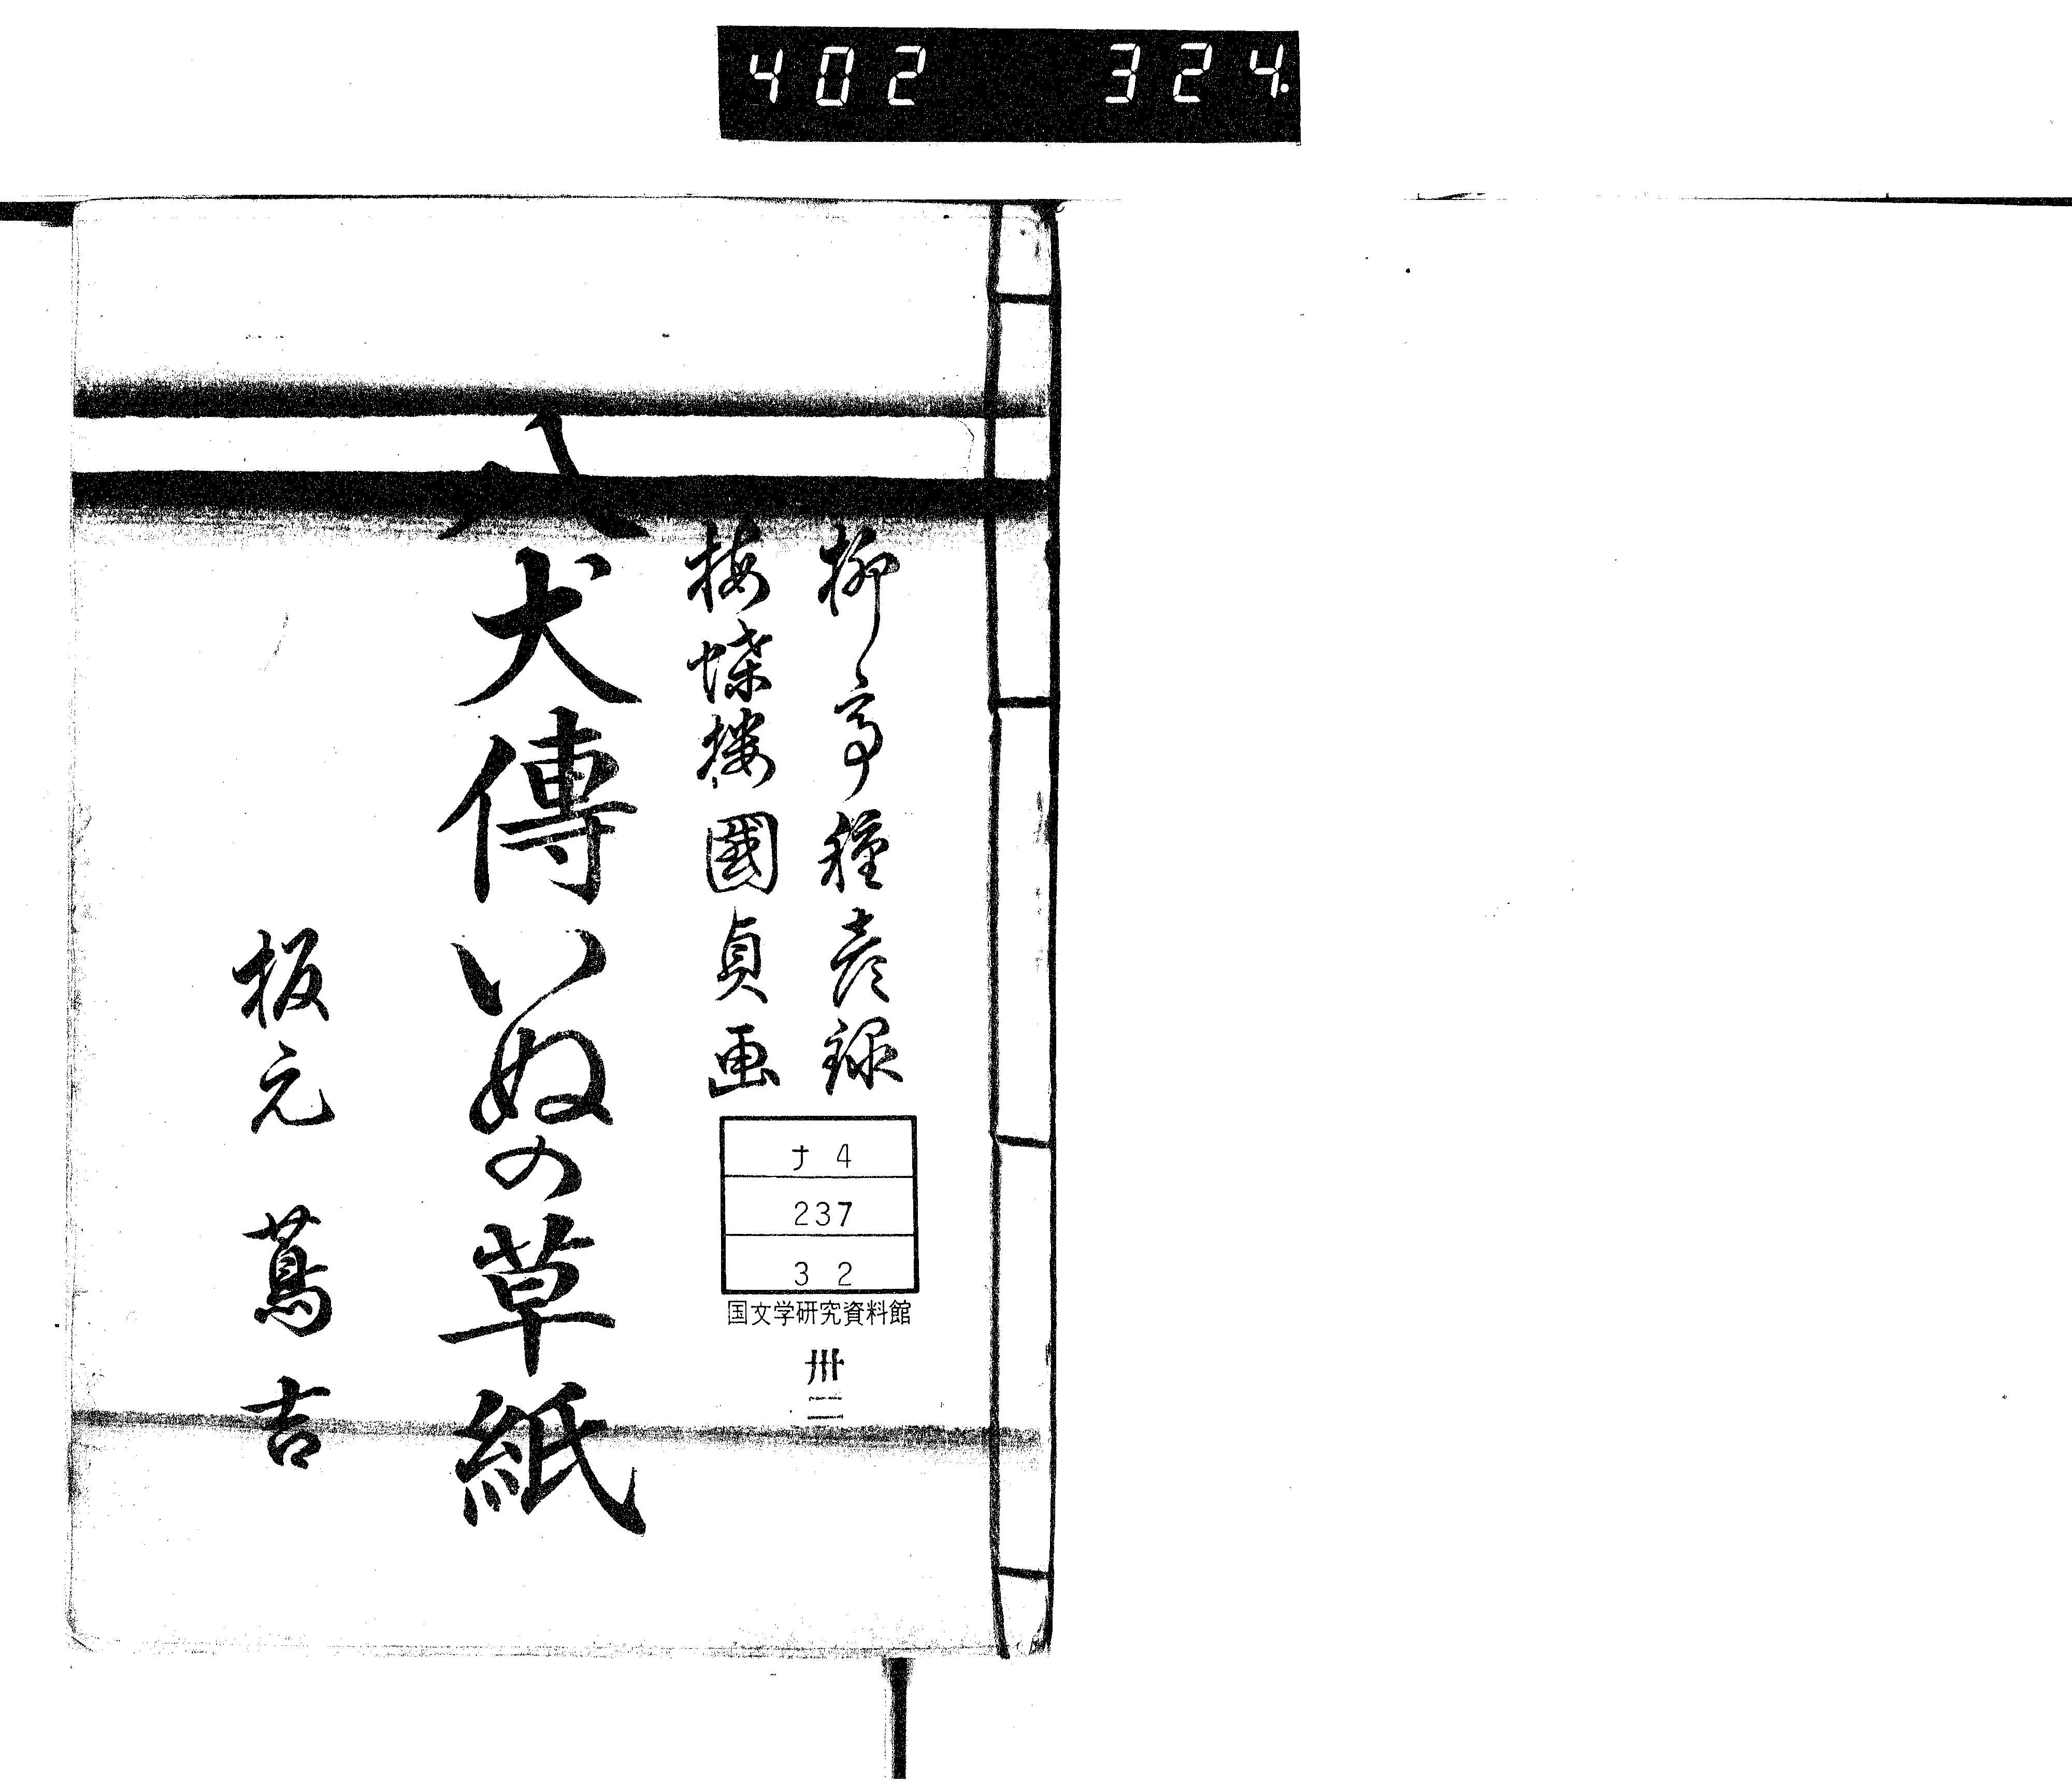 402 324.
柳亭種彦録
梅蝶楼國貞画
八犬傳いぬの草紙
板元 蔦吉
ナ 4
237
3 2
国文学研究資料館
卅二